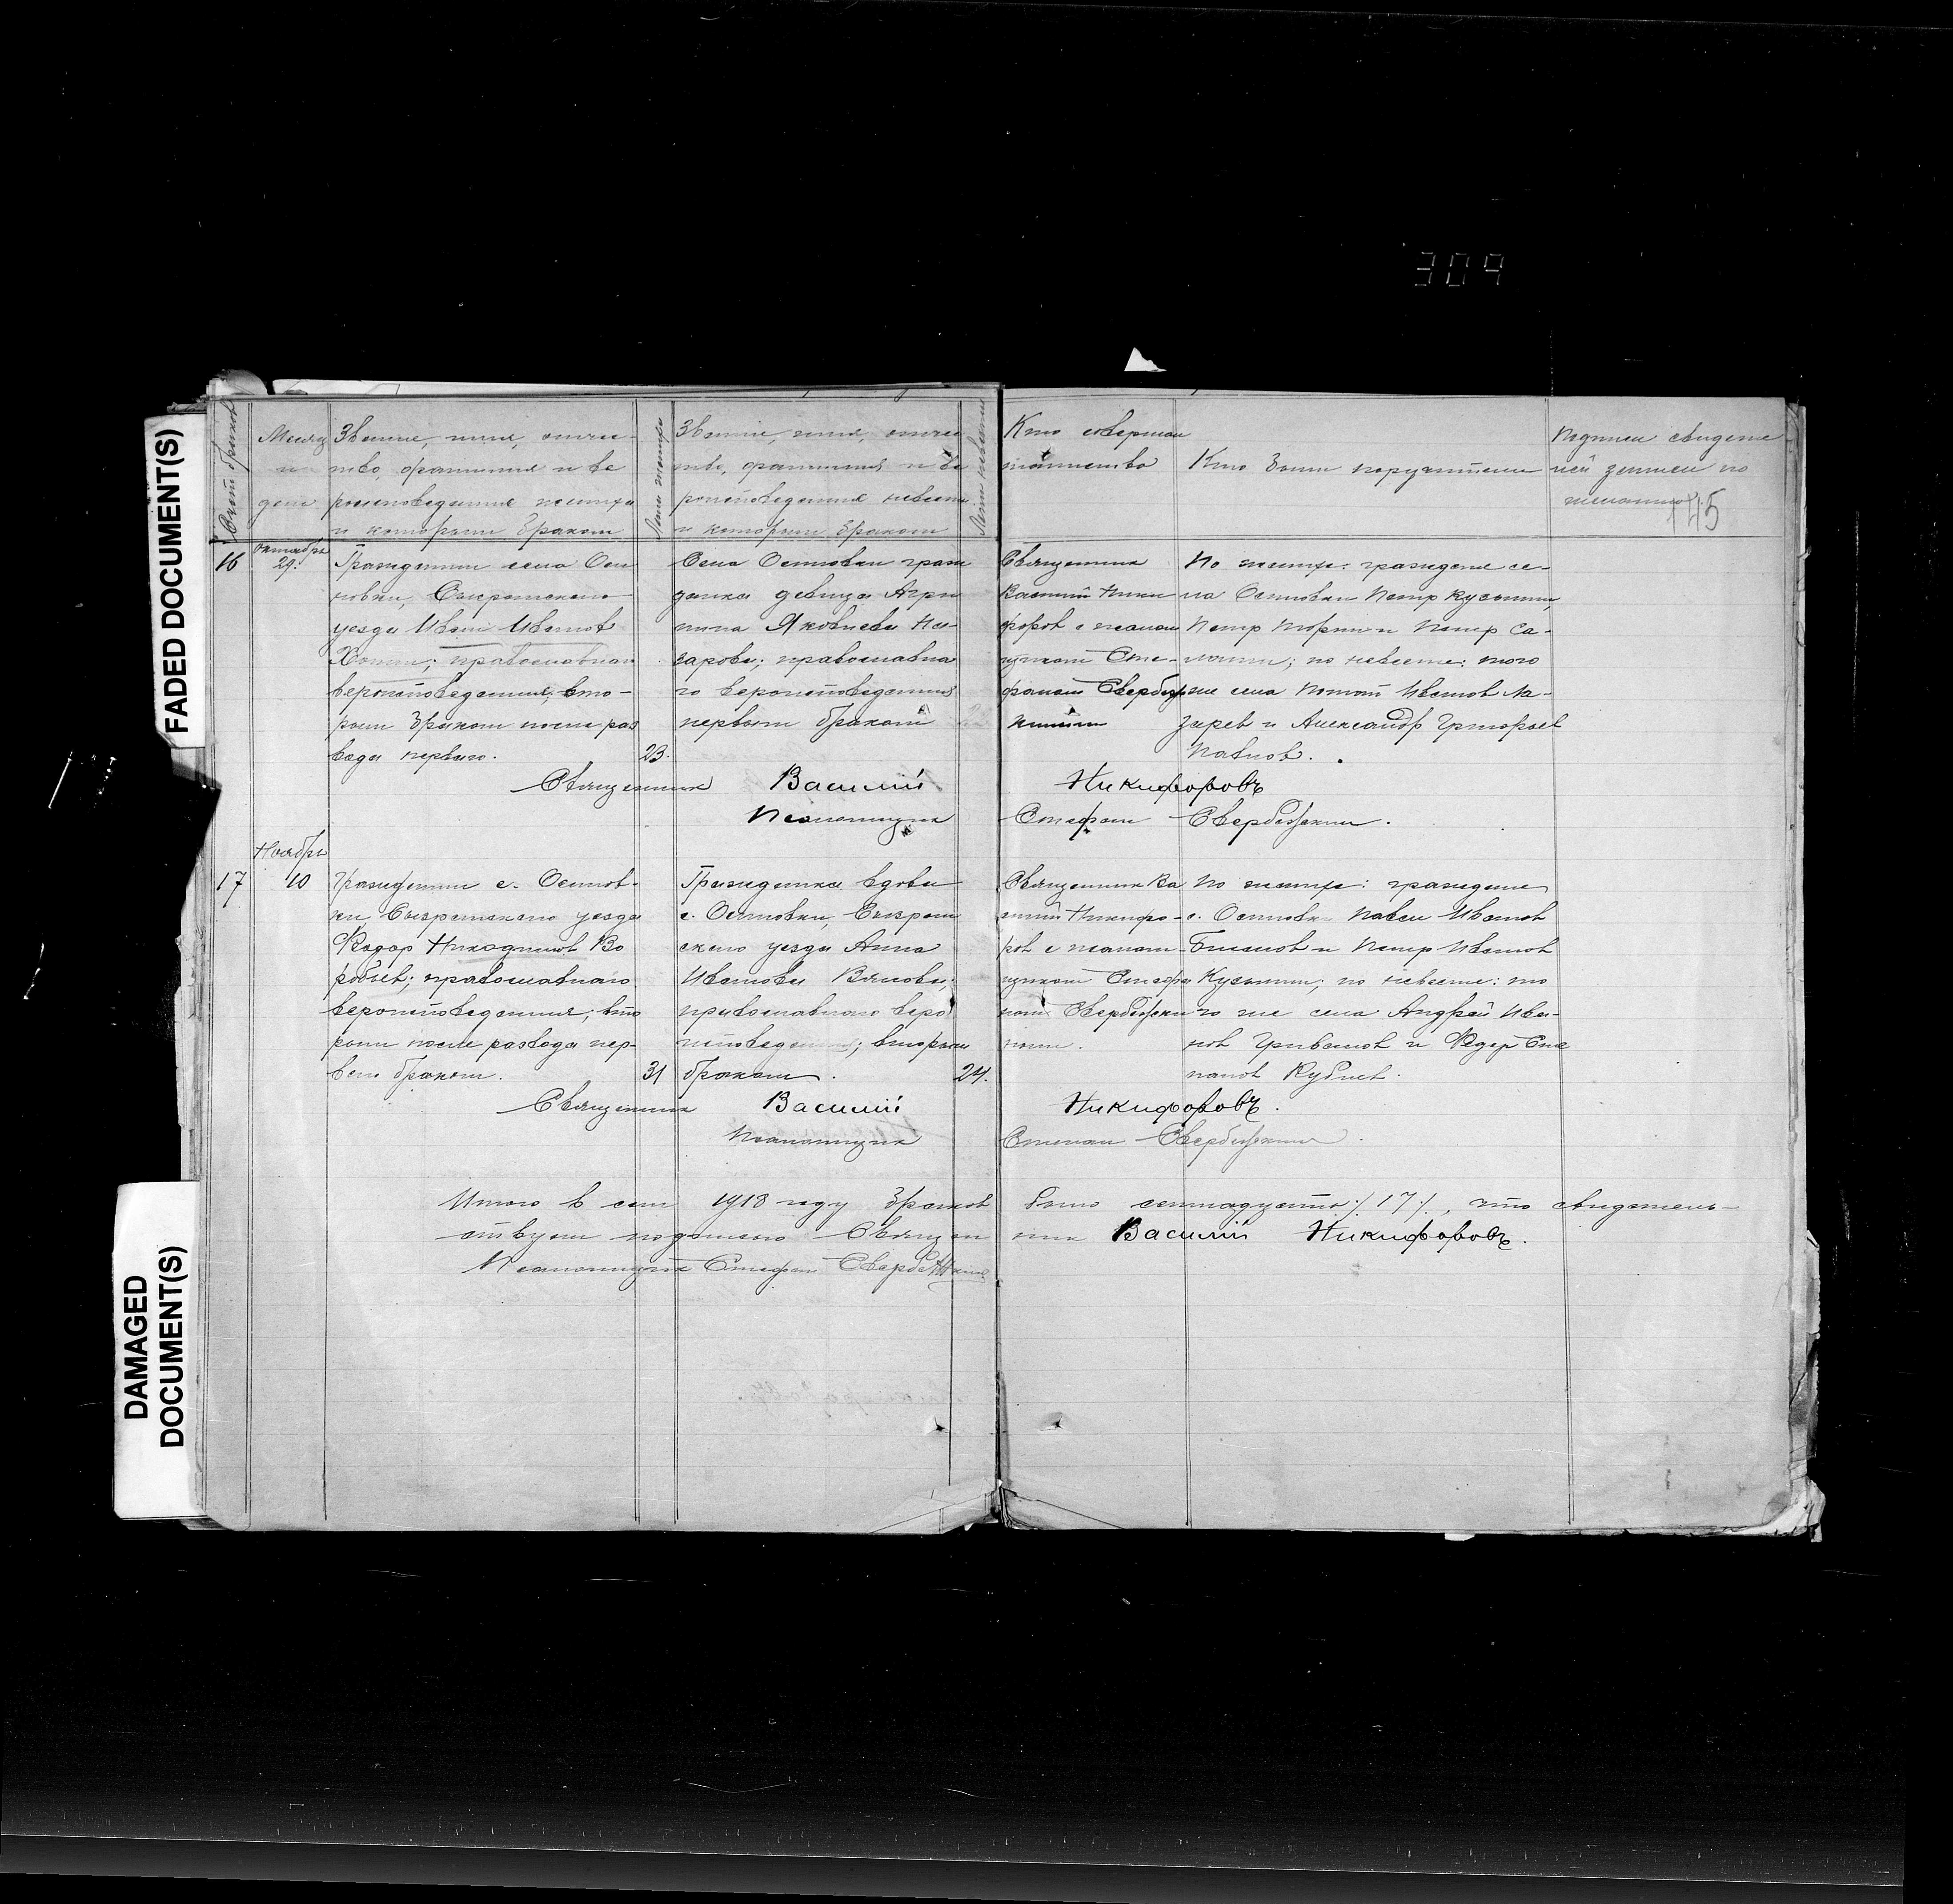 309
FADED DOCUMENT(S)
DAMAGED DOCUMENT(S)
Счет браков
Месяц
и
день
Звание, имя, отче-
тво, фамилия и ве
роисповедание жениха
и которым браком
Лета жениха
Звание, имя, отче
тво, фамилия и ве
роисповедание невесты
и которым браком
Лета невесты
Кто совершал
таинство
Кто были поручители
Подписи свидете
лей записи по
желанию
145
16
Октябрь
29.
Гражданин села Оси
новки, Сызранского
уезда Иван Иванов
Хомин; православнаго
вероисповедания; вто-
рым браком после раз
вода перваго.
23.
Села Осиновки граж
данка девица Агри
пина Яковлева На-
зарова; православна
го вероисповедания
первым браком
22
Священник
Василий Ники
форов с псалом
щиком Сте-
фаном Свербеж
киным
По женихе: граждане се-
ла Осиновки Петр Кузьмин,
Петр и Петр Са-
; по невесте: того
же села Иванов Ла-
зарев и Александр Григорьев
Павлов.
Священник Василий Никифоровъ
Псаломщик Стефан Свербежкин.
Ноябрь
17
10
Гражданин с. Осинов-
ки Сызранского уезда
Федор Никодимов Во
робьев; православнаго
вероисповедания; вто
рым после развода пер-
ваго браком.
31
Гражданка вдова
с. Осиновки, Сызран
ского уезда Анна
Иванова Власова;
православнаго веро
исповедания; вторым
браком.
24.
Священник Ва
силий Никифо-
ров с псалом-
щиком Стефа
ном Свербежки
ным.
По женихе: граждане
с. Осиновки Павел Иванов
и Петр Иванов
Кузьмин; по невесте: то
го же села Андрей Ива-
нов Гриванов и Федор Сте
панов
Священник Василий Никифоровъ.
Псаломщик Степан Свербежкин.
Итого в сем 1918 году браков было семнадцать ./.17./., что свидетель-
ствуем подписью Священник Василий Никифоровъ.
Псаломщик Стефан Свербежкин